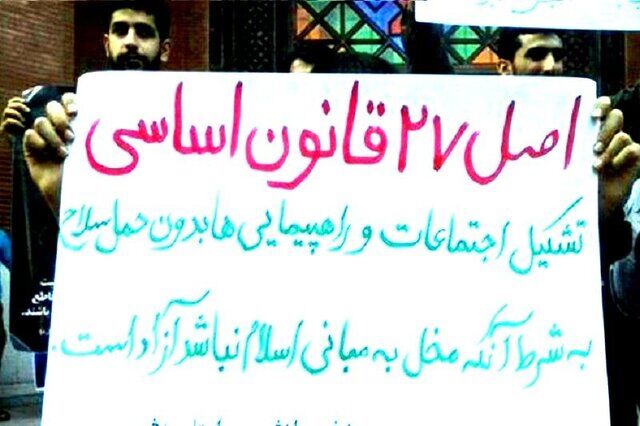 اصل ۲۷ قانون اساسی
تشکیل اجتماعات و راهپیمایی ها بدون حمل سلاح
به شرط آنکه مخل به مبانی اسلام نباشد آزاد است.
است
قاطع
باشند.